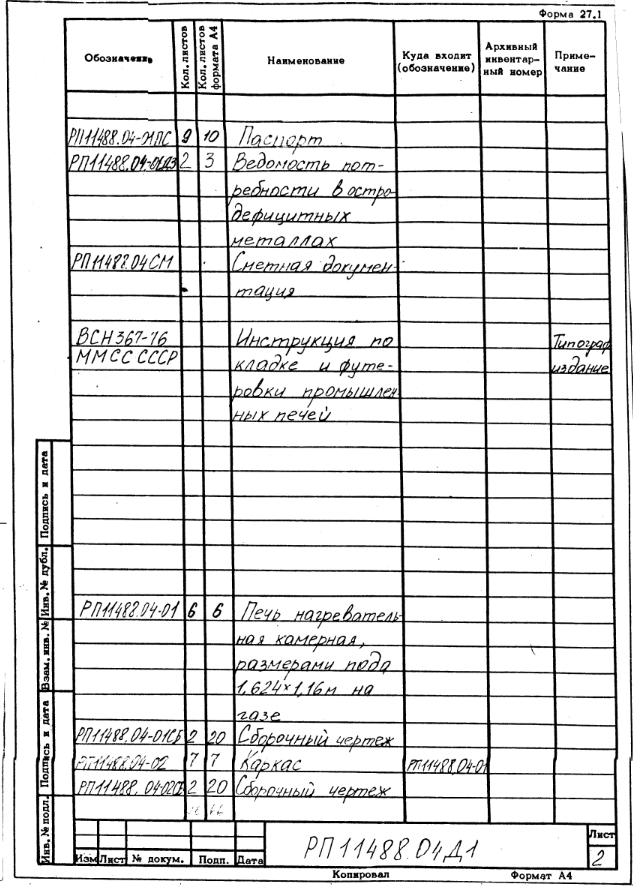 Форма 27.1
Обозначение Кол. листов Кол. листов формата А4 Наименование Куда входит (обозначение) Архивный инвентарный номер Примечание
РП11488.04-01ПС 9 10 Паспорт
РП11488.04-01Д3 2 3 Ведомость пот-
ребности в остро-
дефицитных
металлах
РП11488.04СМ Сметная докумен-
тация
ВСН367-76 Инструкция по Типограф.
ММСС СССР кладке и футе- издание
ровки промышлен-
ных печей
РП11488.04-01 6 6 Печь нагреватель-
ная камерная,
размерами пода
1,624×1,16м на
газе
РП11488.04-01СБ 2 20 Сборочный чертеж
РП11488.04-02 7 7 Каркас РП11488.04-01
РП11488.04-02СБ 2 20 Сборочный чертеж
Инв. № подл. Подпись и дата Взам. инв. № Инв. № дубл. Подпись и дата
РП11488.04Д1
Лист
2
Изм Лист № докум. Подп. Дата
Копировал Формат А4